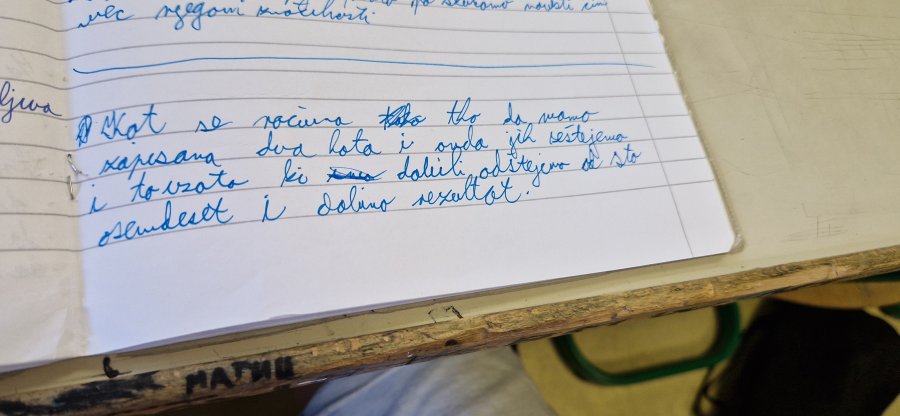 već njegovi
ljiva
Kot se računa tko da mamo
zapisana dva kota i onda jih seštejemo
i to vzoto ki dobili odštejemo od sto
osemdeset i dobimo rezultat.
МАТИЦ